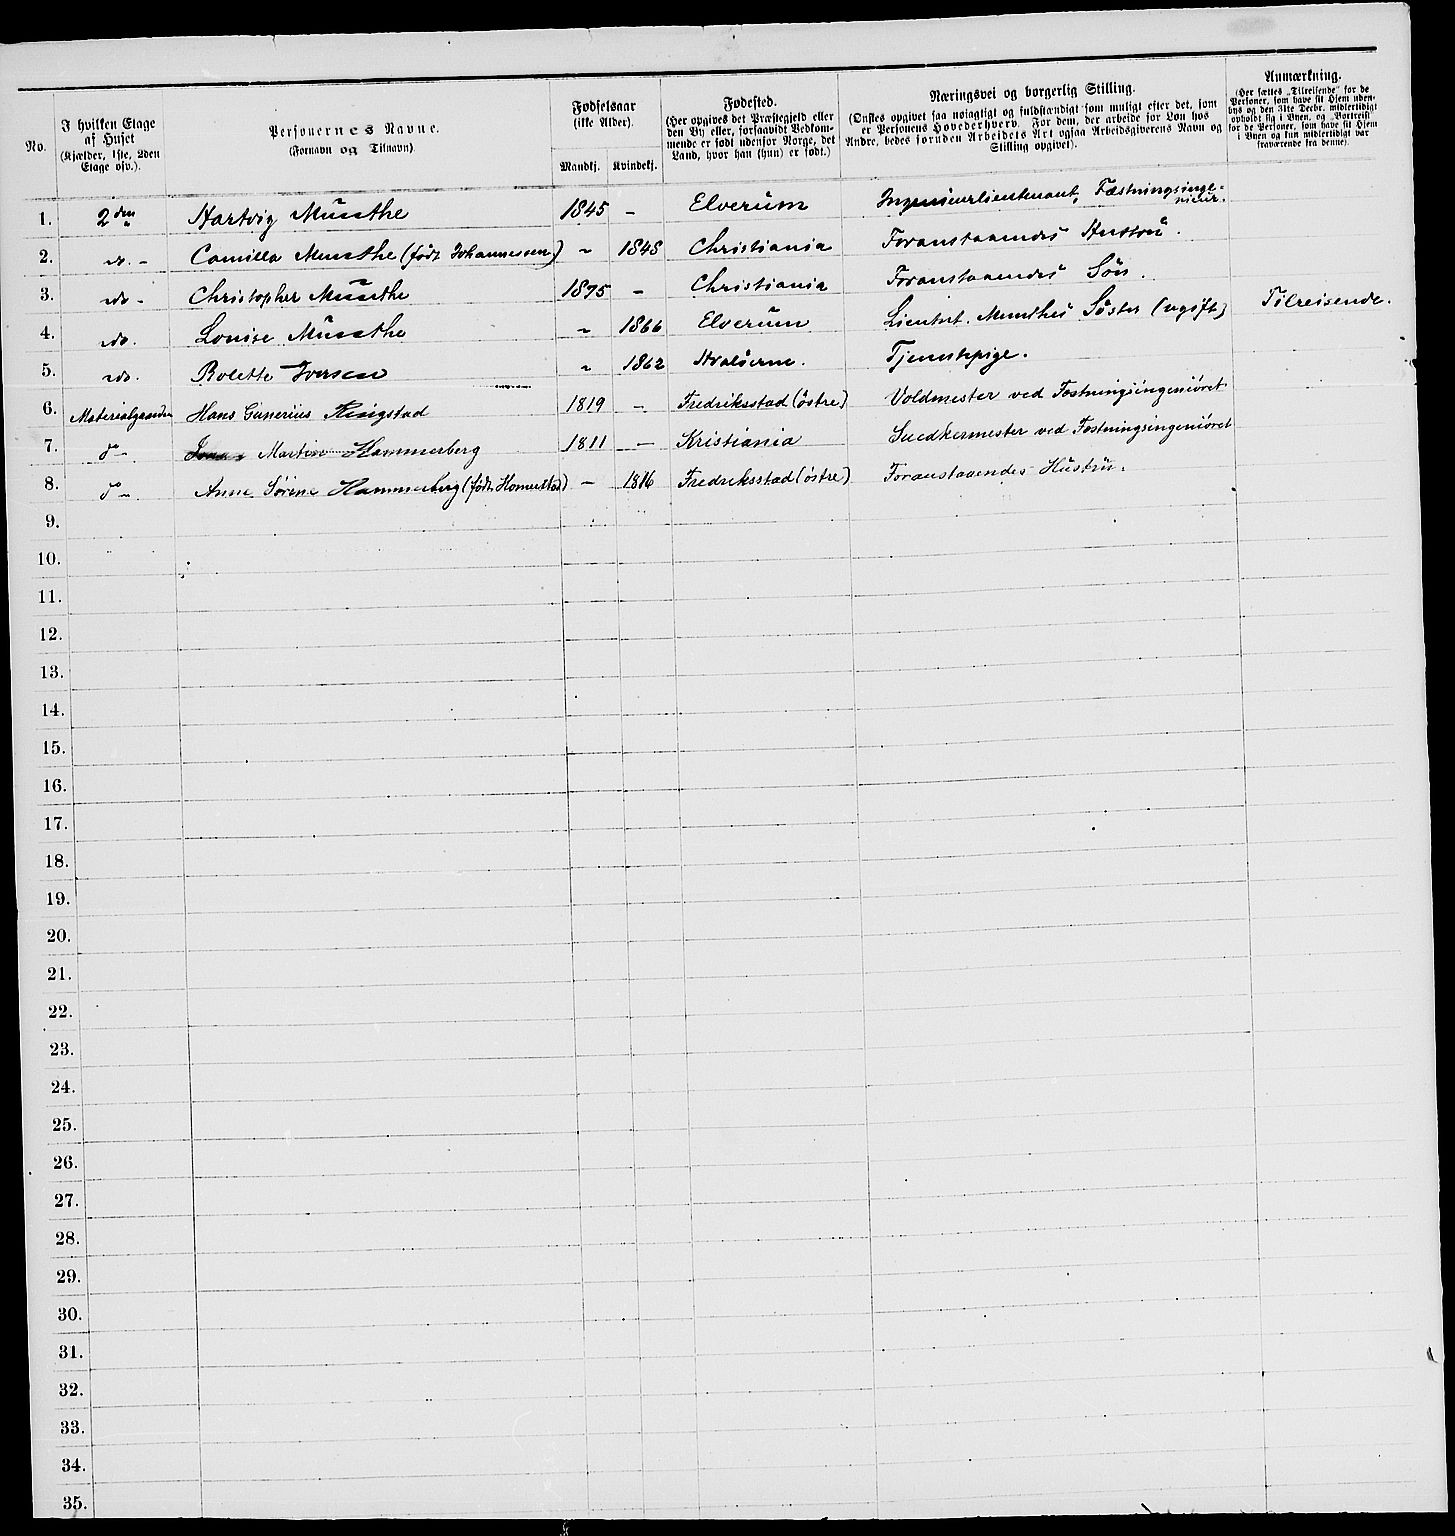 No.
I hvilken Etage af Huset (Kjælder, 1ste, 2den Etage osv.).
Personernes Navne. (Fornavn og Tilnavn).
Fødselsaar (ikke Alder).
Mandkj. Kvindekj.
Fødested. (Her opgives det Præstegjeld eller den By eller, forsaavidt Vedkommende er født udenfor Norge, det Land, hvor han (hun) er født.)
Næringsvei og borgerlig Stilling. (Ønskes opgivet saa nøiagtigt og fuldstændigt som muligt efter det, som er Personens Hovederhverv. For dem, der arbeide for Løn hos Andre, bedes foruden Arbeidets Art ogsaa Arbeidsgiverens Navn og Stilling opgivet).
Anmærkning. (Her sættes „Tilreisende" for de Personer, som have sit Hjem udenbys og den 31te Decbr. midlertidigt opholdt sig i Byen, og „Bortreist" for de Personer, som have sit Hjem i Byen og kun midlertidigt var fraværende fra denne).
1. 2den Hartvig Munthe 1845 – Elverum Ingenieurlieutenant, Fæstningsingenieur.
2. do. – Camilla Munthe (født Johannessen) " 1848 Christiania Foranstaaendes Hustru.
3. do – Christopher Munthe 1875 – Christiania Foranstaaendes Søn.
4. do. Louise Munthe " 1866 Elverum Lieutnt. Munthes Søster (ugift) Tilreisende.
5. do. Bolette Iversen " 1862 Hvaløerne. Tjenestepige.
6. Materialgaarden Hans Gunerius Ringstad 1819 – Fredriksstad (östre) Voldmester ved Fæstningsingeniöret
7. do – Martin Hammerberg 1811 – Kristiania Snedkermester ved Fæstningsingeniöret
8. do – Anne Sørine Hammerberg (født Homerstad) – 1816 Fredriksstad (östre) Foranstaaendes Hustru.
9.
10.
11.
12.
13.
14.
15.
16.
17.
18.
19.
20.
21.
22.
23.
24.
25.
26.
27.
28.
29.
30.
31.
32.
33.
34.
35.